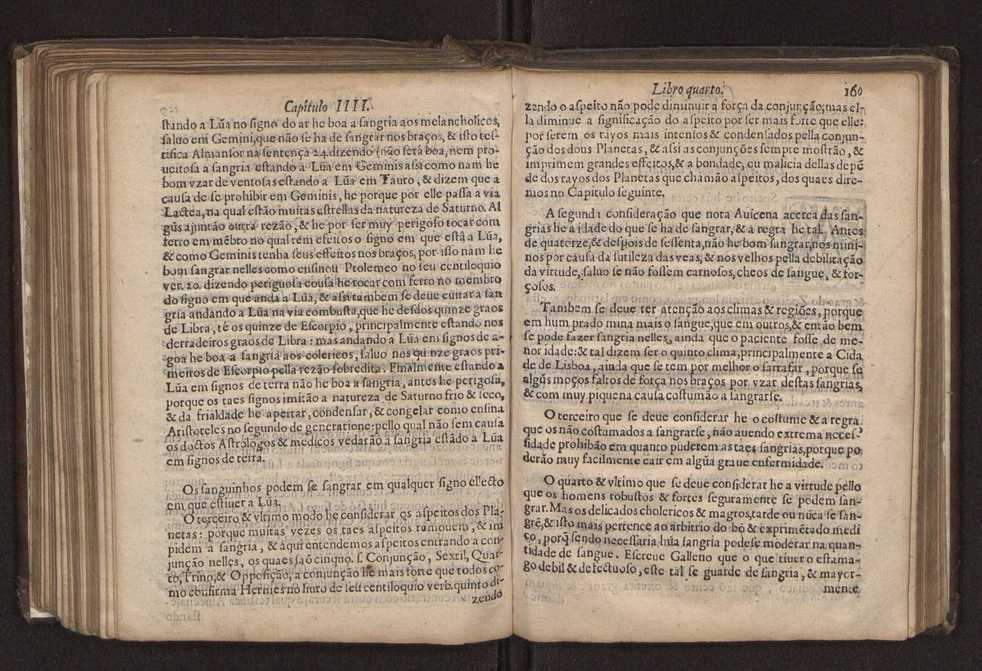 Capitulo IIII.
stando a Lũa no signo do ar he boa a sangria aos melancholicos,
saluo em Gemini, que não se ha de sangrar nos braços, & isto tes-
tifica Almansor na sentença 24. dizendo (não será boa, nem pro-
ueitosa a sangria estando a Lũa em Geminis assi como nam he
bom vzar de ventosas estando a Lũa em Tauro, & dizem que a
causa de se prohibir em Geminis, he porque por elle passa a via
Lactea, na qual estão muitas estrellas da natureza de Saturno. Al
gũs ajuntão outra rezão, & he por ser muy perigoso tocar com
ferro em mẽbro no qual tem efeitos o signo em que está a Lũa,
& como Geminis tenha seus effeitos nos braços, por isso nam he
bom sangrar nelles como ensinou Ptolemeo no seu centiloquio
ver. 20. dizendo periguosa cousa he tocar com ferro no membro
do signo em que anda a Lũa, & assi tambem se deue euitar a san
gria andando a Lũa na via combusta, que he desdos quinze graos
de Libra, té os quinze de Escorpio, principalmente estando nos
derradeiros graos de Libra: mas andando a Lũa em signos de a-
goa he boa a sangria aos colericos, saluo nos quinze graos pri-
meiros de Escorpio pella rezão sobredita. Finalmente estando a
Lũa em signos de terra não he boa a sangria, antes he perigosa,
porque os taes signos imitão a natureza de Saturno frio & seco,
& da frialdade he apertar, condensar, & congelar como ensina
Aristoteles no segundo de generatione: pello qual não sem causa
os doctos Astrólogos & medicos vedarão a sangria estãdo a Lũa
em signos de terra.
Os sanguinhos podem se sangrar em qualquer signo celesto
em que estiuer a Lũa.
O terceiro & vltimo modo he considerar os aspeitos dos Pla-
netas: porque muitas vezes os taes aspeitos rompuem, & im
pidem a sangria, & aqui entendemos aspeitos entrando a con-
junção nelles, os quaes saõ cinquo. s. Conjunção, Sextil, Quar-
to, Trino, & Opposição, a conjunção he mais forte que todos co-
mo confirma Hermes no liuro de seu centiloquio verb. quinto di-
zendo
Libro quarto. 160
zendo o aspeito não pode diminuir a força da conjunção, mas el-
la diminue a significação do aspeito por ser mais forte que elle:
por serem os rayos mais intensos & condensados pella conjun-
ção dos dous Planetas, & assi as conjunções sempre mostrão, &
imprimem grandes effeitos, & a bondade, ou malicia dellas depẽ
de dos rayos dos Planetas que chamão aspeitos, dos quaes dire-
mos no Capitulo seguinte.
A segunda consideração que nota Auicena acerca das san-
grias he a idade do que se ha de sangrar, & a regra he tal. Antes
de quatorze, & despois de sessenta, não he bom sangrar, nos mini-
nos por causa da sutileza das veas, & nos velhos pella debilitação
da virtude, saluo se não fossem carnosos, cheos de sangue, & for-
çosos.
Tambem se deue ter atenção aos climas & regiões, porque
em hum prado mina mais o sangue, que em outros, & então bem
se pode fazer sangria nelles, ainda que o paciente fosse de me-
nor idade: & tal dizem ser o quinto clima, principalmente a Cida
de de Lisboa, ainda que se tem por melhor o sarrafar, porque se
algũs moços faltos de força nos braços por vzar destas sangrias,
& com muy piquena causa costumão a sangrarse.
O terceiro que se deue considerar he o costume & a regra
que os não costumados a sangrarse, não auendo extrema neces-
sidade prohibão em quanto puderem as taes sangrias, porque po
derão muy facilmente cair em algũa graue enfermidade.
O quarto & vltimo que se deue considerar he a virtude pello
que os homens robustos & fortes seguramente se podem san-
grar. Mas os delicados cholericos & magros, tarde ou nũca se san-
grẽ, & isto mais pertence ao arbitrio do bõ & exprimẽtado medi
co, porq̃ sendo necessaria hũa sangria podese moderar na quan-
tidade de sangue. Escreue Galleno que o que tiuer o estama-
go debil & defectuoso, este tal se guarde de sangria, & mayor-
mente